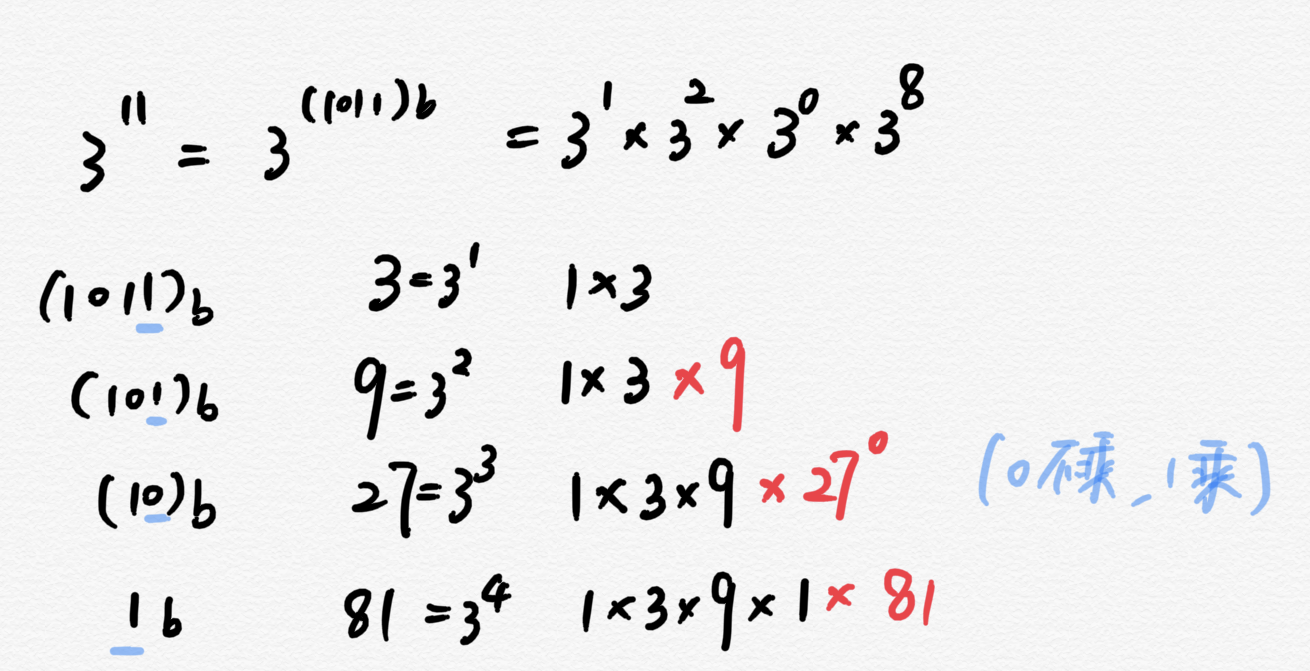 3¹¹ = 3⁽¹⁰¹¹⁾ᵇ = 3¹ × 3² × 3⁰ × 3⁸
(1011)b 3=3¹ 1×3
(101)b 9=3² 1×3×9
(10)b 27=3³ 1×3×9×27⁰ (0不乘,1乘)
1b 81=3⁴ 1×3×9×1×81